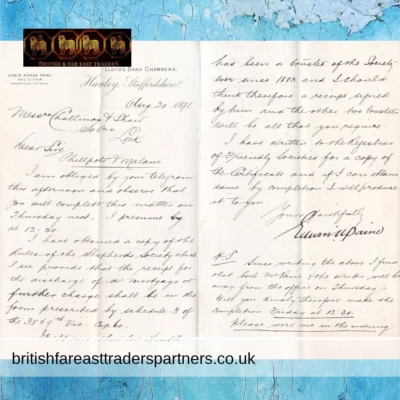 BRITISH & FAR EAST TRADERS
LLOYDS BANK CHAMBERS,
Hanley, Staffordshire
EDWIN ALFRED PAINE,
SOLICITOR.
Aug 20 1891
Messrs Challinor & Shaw
Solrs
Leek
Dear Sirs
Phillpots & Malam
I am obliged by your telegram
this afternoon and observe that
you will complete this matter on
Thursday next, I presume at
12.30.
I have obtained a copy of the
Rules of the Shepherds Society which
I see provide that the receipt for
the discharge of a mortgage or
further charge shall be in the
form prescribed by schedule 3 of
the 38 & 39th Vic. Cap 60.
has been a trustee of the Society
ever since 1883 and I should
think therefore a receipt signed
by him and the other two trustees
will be all that you require.
I have written to the Registrar
of Friendly Societies for a copy of
the Certificate and if I can obtain
same by completion I will produce
it to you.
Yours faithfully
Edwin A Paine
P.S. Since writing the above I find
that both Mr Paine & the writer will be
away from the office on Thursday.
Will you kindly therefore make the
completion Friday at 12.30.
Please wire me in the morning.
britishfareasttraderspartners.co.uk